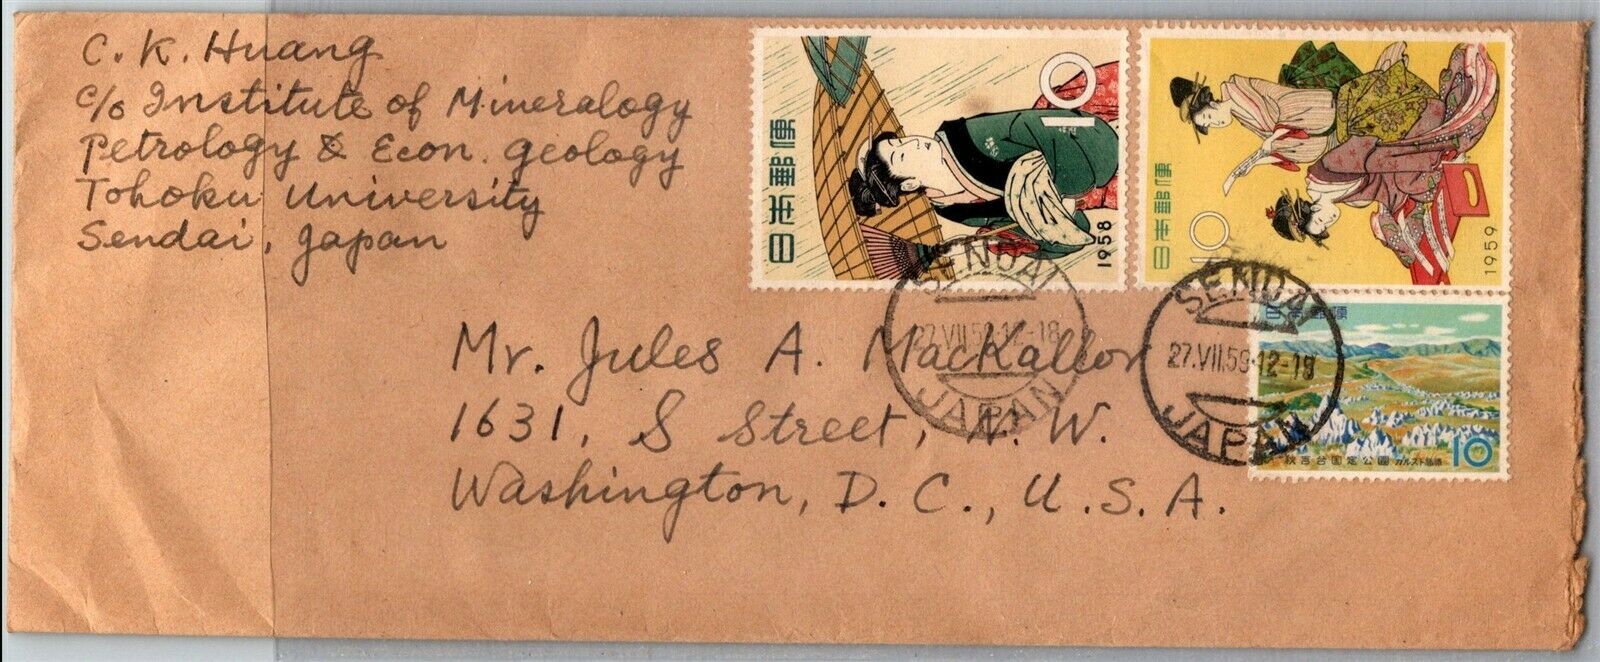 C. K. Huang
c/o Institute of Mineralogy
Petrology & Econ. Geology
Tohoku University
Sendai, Japan
10
日本郵便
1958
10
日本郵便
1959
SENDAI
27.VII.59.12-18
JAPAN
SENDAI
27.VII.59.12-18
JAPAN
日本郵便
10
秋吉台国定公園 カルスト台地
Mr. Jules A. MacKallor
1631, S Street, N. W.
Washington, D. C., U. S. A.